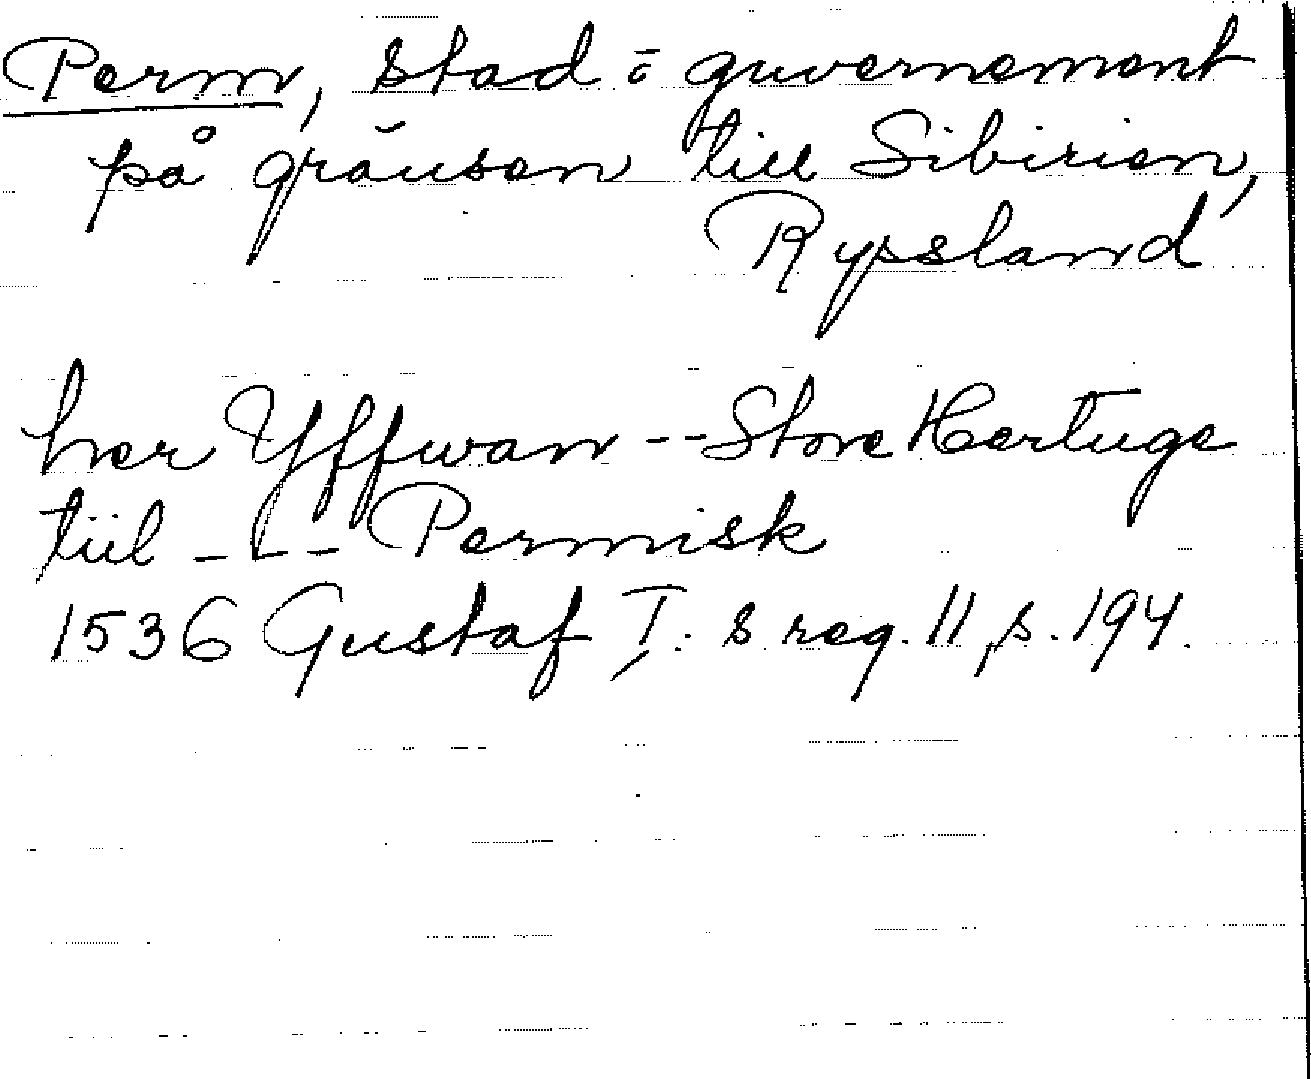 Perm, stad o guvernement
på gränsen till Sibirien,
Ryssland
her Yffwan -- Store Hertuge
tiil --- Permisk
1536 Gustaf I:s reg. 11, s. 194.